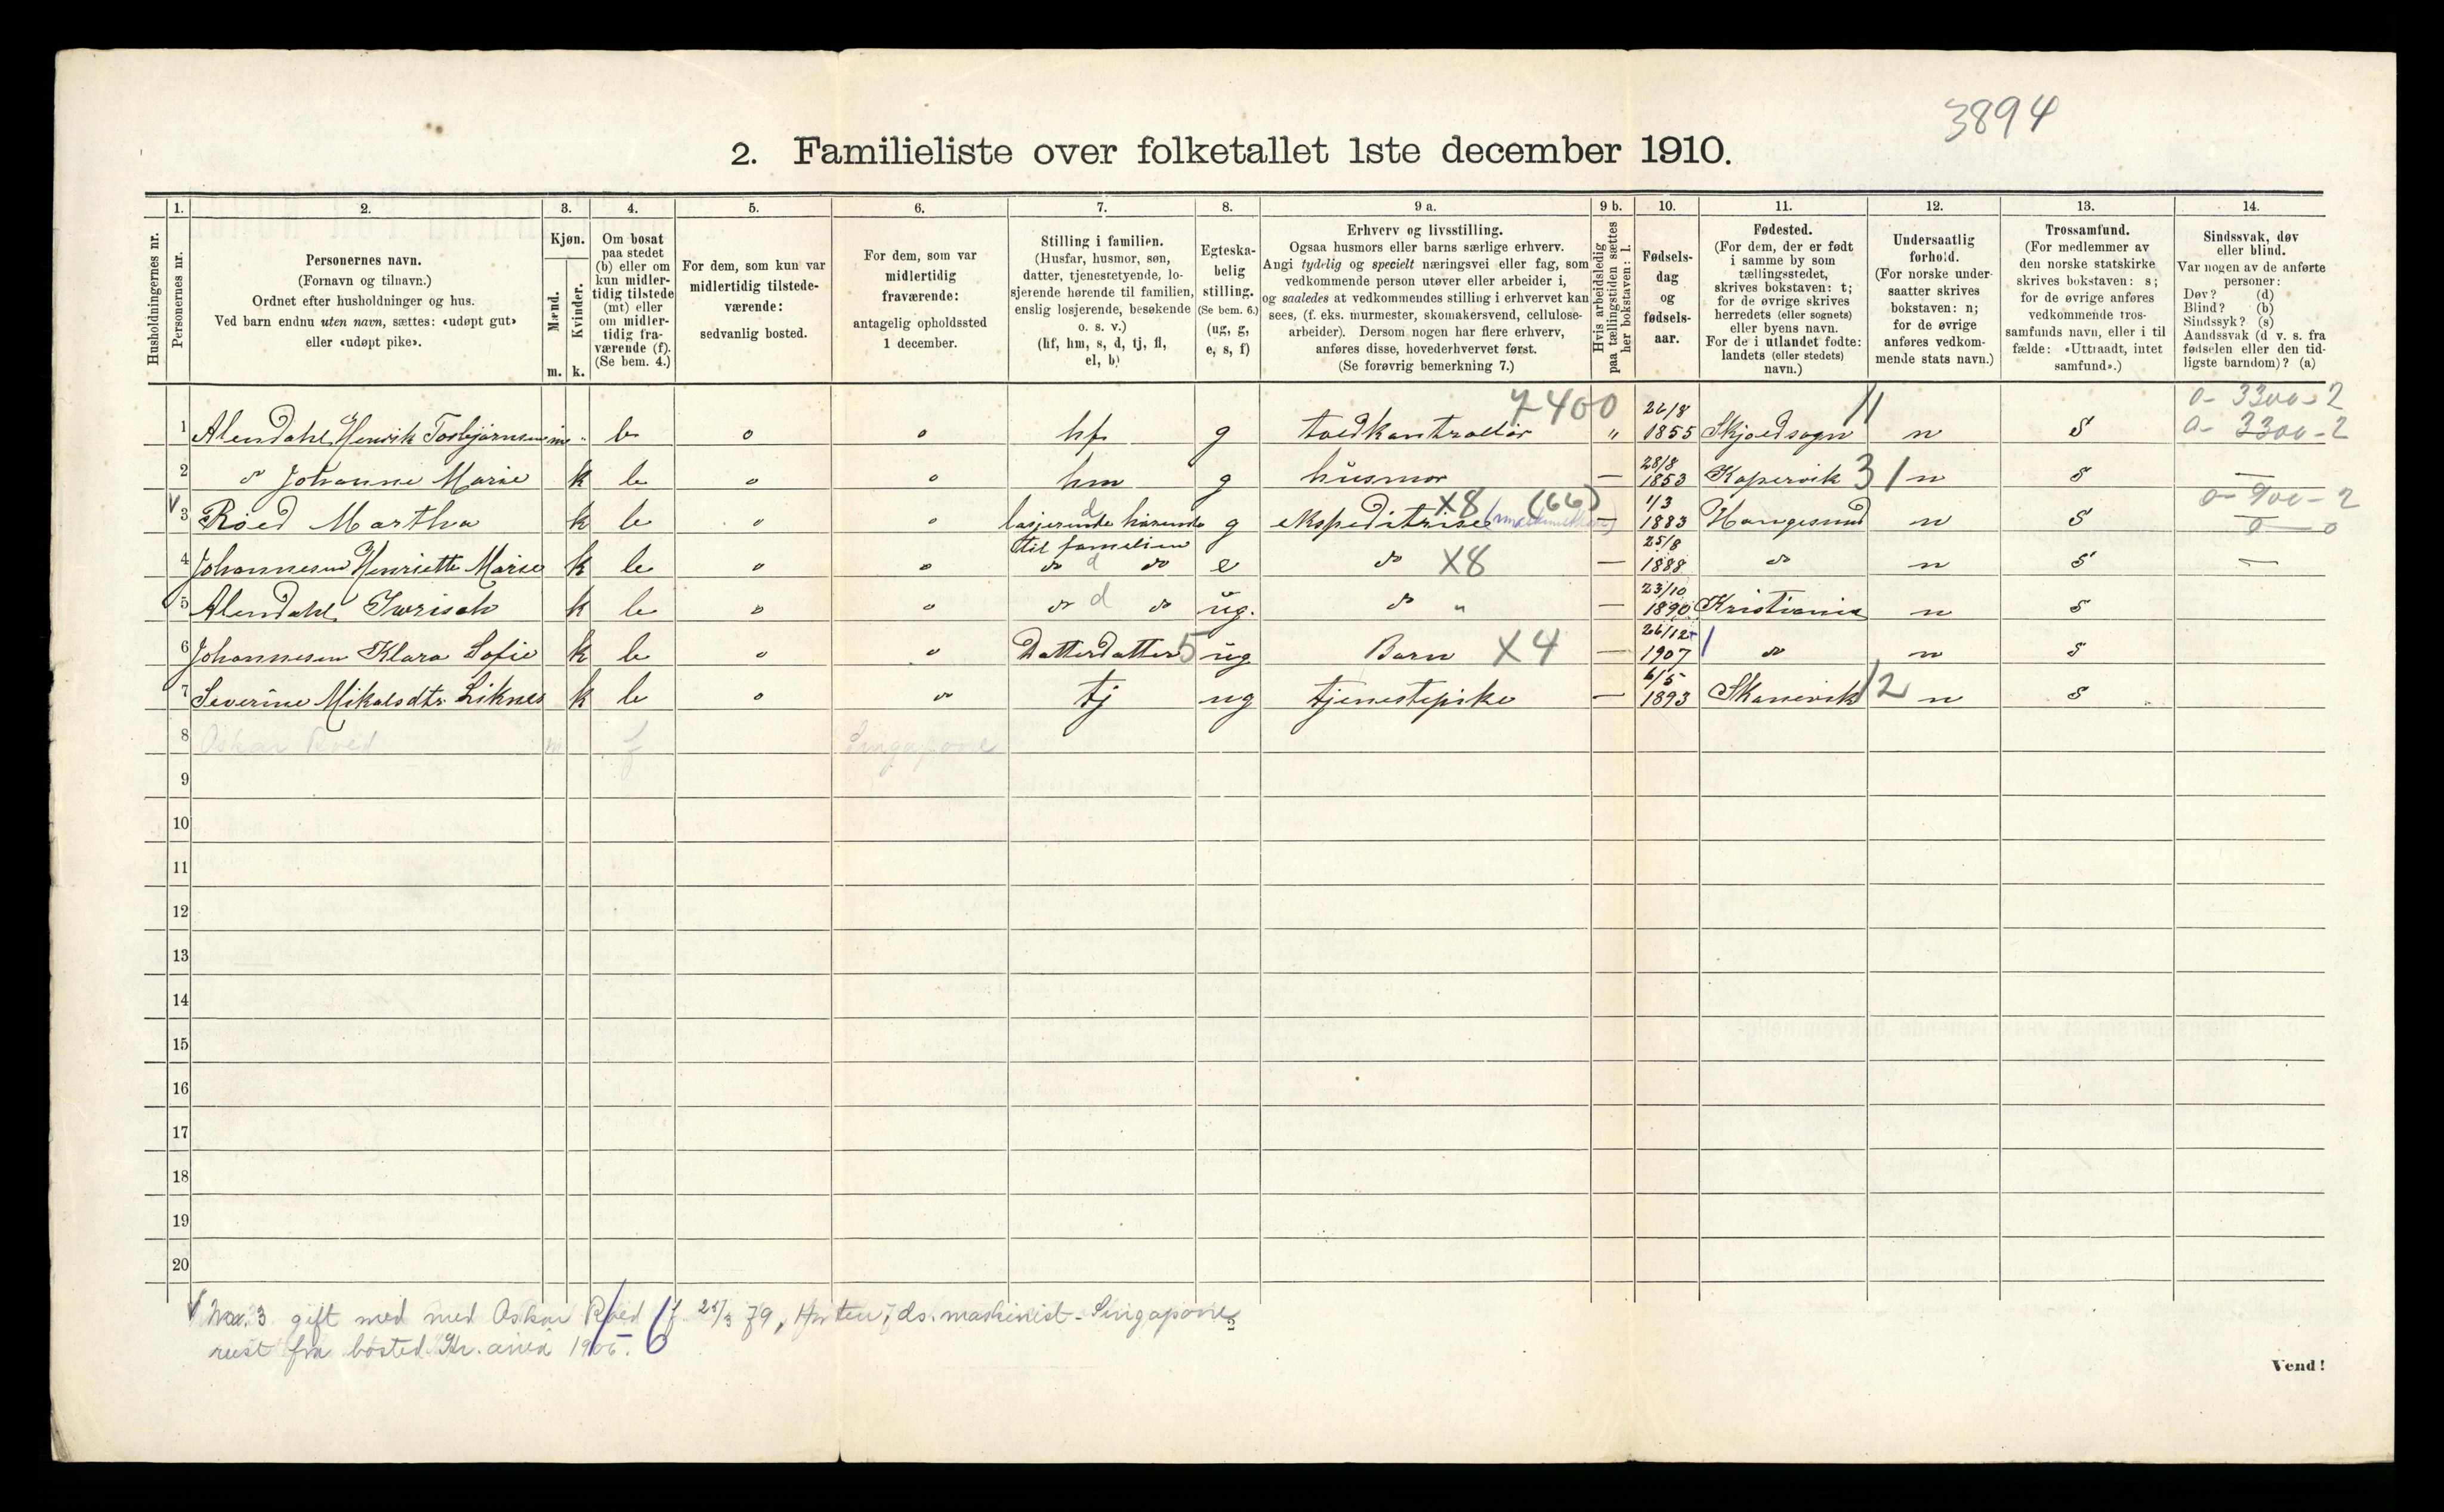 3894
2. Familieliste over folketallet 1ste december 1910.
Husholdningernes nr.
1. Personernes nr.
2. Personernes navn. (Fornavn og tilnavn.) Ordnet efter husholdninger og hus. Ved barn endnu uten navn, sættes: «udøpt gut» eller «udøpt pike».
3. Kjøn. Mænd. m. Kvinder. k.
4. Om bosat paa stedet (b) eller om kun midlertidig tilstede (mt) eller om midlertidig fraværende (f). (Se bem. 4.)
5. For dem, som kun var midlertidig tilstedeværende: sedvanlig bosted.
6. For dem, som var midlertidig fraværende: antagelig opholdssted 1 december.
7. Stilling i familien. (Husfar, husmor, søn, datter, tjenestetyende, losjerende hørende til familien, enslig losjerende, besøkende o. s. v.) (hf, hm, s, d, tj, fl, el, b)
8. Egteskabelig stilling. (Se bem. 6.) (ug, g, e, s, f)
9 a. Erhverv og livsstilling. Ogsaa husmors eller barns særlige erhverv. Angi tydelig og specielt næringsvei eller fag, som vedkommende person utøver eller arbeider i, og saaledes at vedkommendes stilling i erhvervet kan sees, (f. eks. murmester, skomakersvend, cellulosearbeider). Dersom nogen har flere erhverv, anføres disse, hovederhvervet først. (Se forøvrig bemerkning 7.)
9 b. Hvis arbeidsledig paa tællingstiden sættes her bokstaven: l.
10. Fødselsdag og fødselsaar.
11. Fødested. (For dem, der er født i samme by som tællingsstedet, skrives bokstaven: t; for de øvrige skrives herredets (eller sognets) eller byens navn. For de i utlandet fødte: landets (eller stedets) navn.)
12. Undersaatlig forhold. (For norske undersaatter skrives bokstaven: n; for de øvrige anføres vedkommende stats navn.)
13. Trossamfund. (For medlemmer av den norske statskirke skrives bokstaven: s; for de øvrige anføres vedkommende trossamfunds navn, eller i tilfælde: «Uttraadt, intet samfund».)
14. Sindssvak, døv eller blind. Var nogen av de anførte personer: Døv? (d) Blind? (b) Sindssyk? (s) Aandssvak (d v. s. fra fødselen eller den tidligste barndom)? (a)
7400 11 0- 3300-2
1 Alendahl, Henrik Torbjørnsen m " b o o hf g toldkontrollør " 26/8 1855 Skjoldsogn n S 0- 3300-2
2 do Johanne Marie k b o o hm g husmor — 28/8 1853 Kopervik 31 n S —
3 Røed Martha k b o o losjerende hørende til familien d g ekspeditrise X8 (66) — 1/3 1883 Haugesund n S 0- 900-2 0—0
4 Johannesen Henriette Marie k b o o do d do e do X8 — 25/8 1888 do n S —
5 Alendahl k b o o do d do ug. do " — 23/10 1890 Kristiania n S
6 Johannesen Klara Sofie k b o o Datterdatter 5 ug Barn X4 — 26/12 1907 do n S
7 Severine Mikalsdtr Liknes k b o o tj ug tjenestepike — 6/5 1893 Skanevik 12 n S
8 Oskar Røed m f Singapore
9
10
11
12
13
14
15
16
17
18
19
20
3 gift med med Oskar Røed f 25/3 79, Horten, ds. maskinist - Singapore
reist fra bosted Kr.ania 1906. 6
Vend!